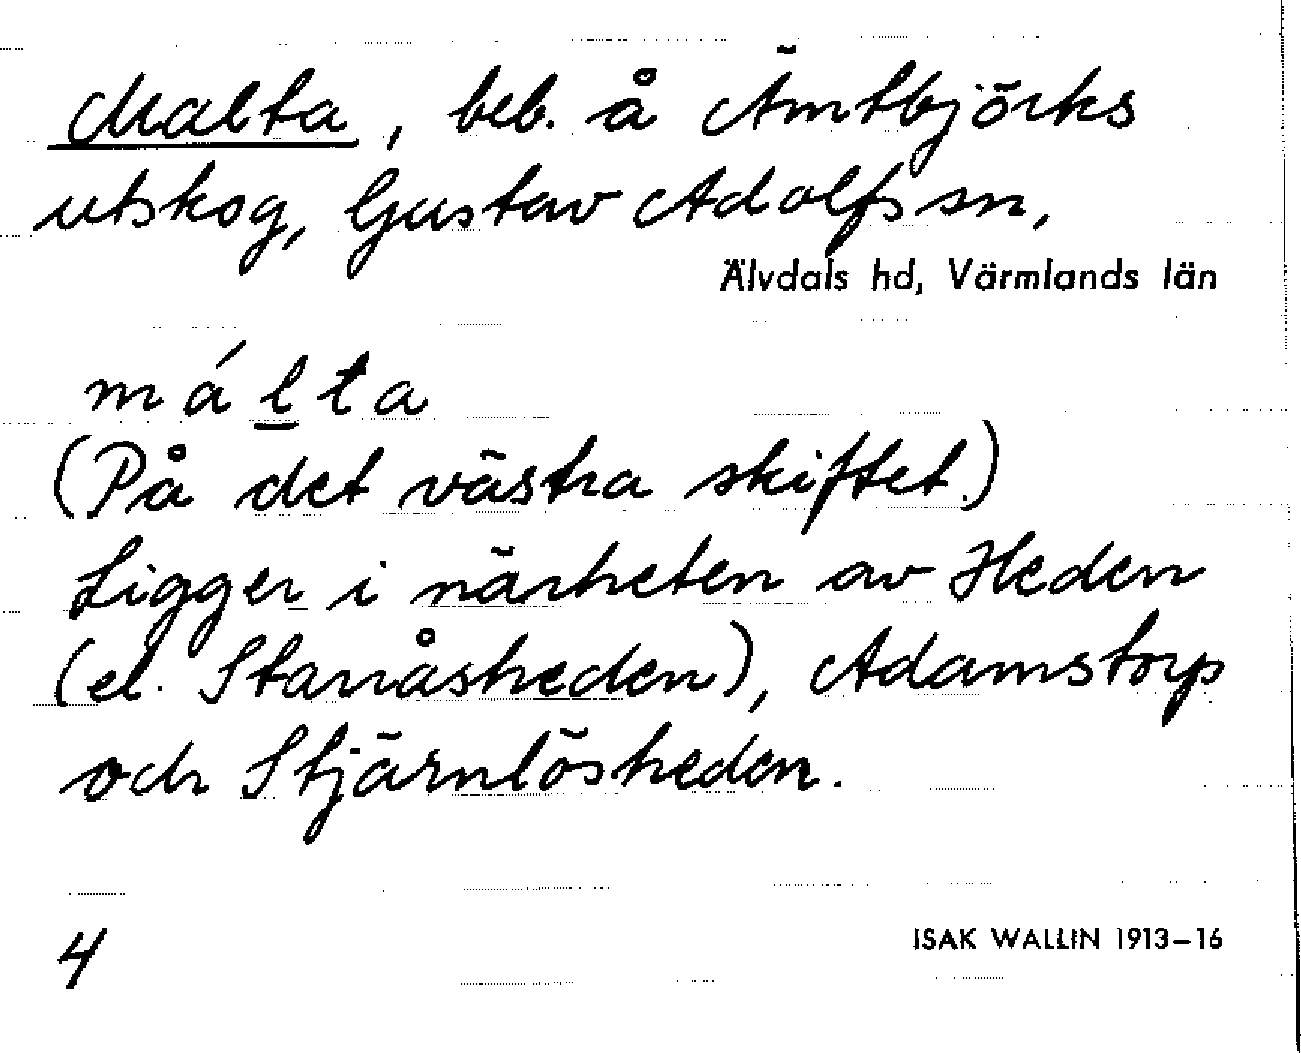 Malta, beb. å Ämtbjörks
utskog, Gustav Adolfs sn,
Älvdals hd, Värmlands län
málta
(På det västra skiftet.)
Ligger i närheten av Heden
(el. Stanåsheden), Adamstorp
och Stjärnlösheden.
4
ISAK WALLIN 1913-16